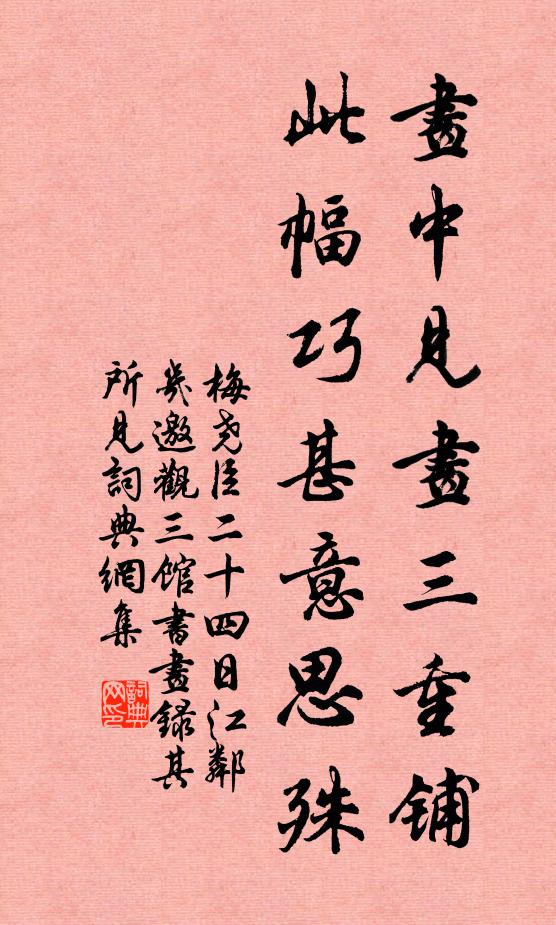 畫中見畫三重鋪
此幅巧甚意思殊
梅堯臣二十四日江鄰
幾邀觀三館書畫錄其
所見詞典網集
詞典網印